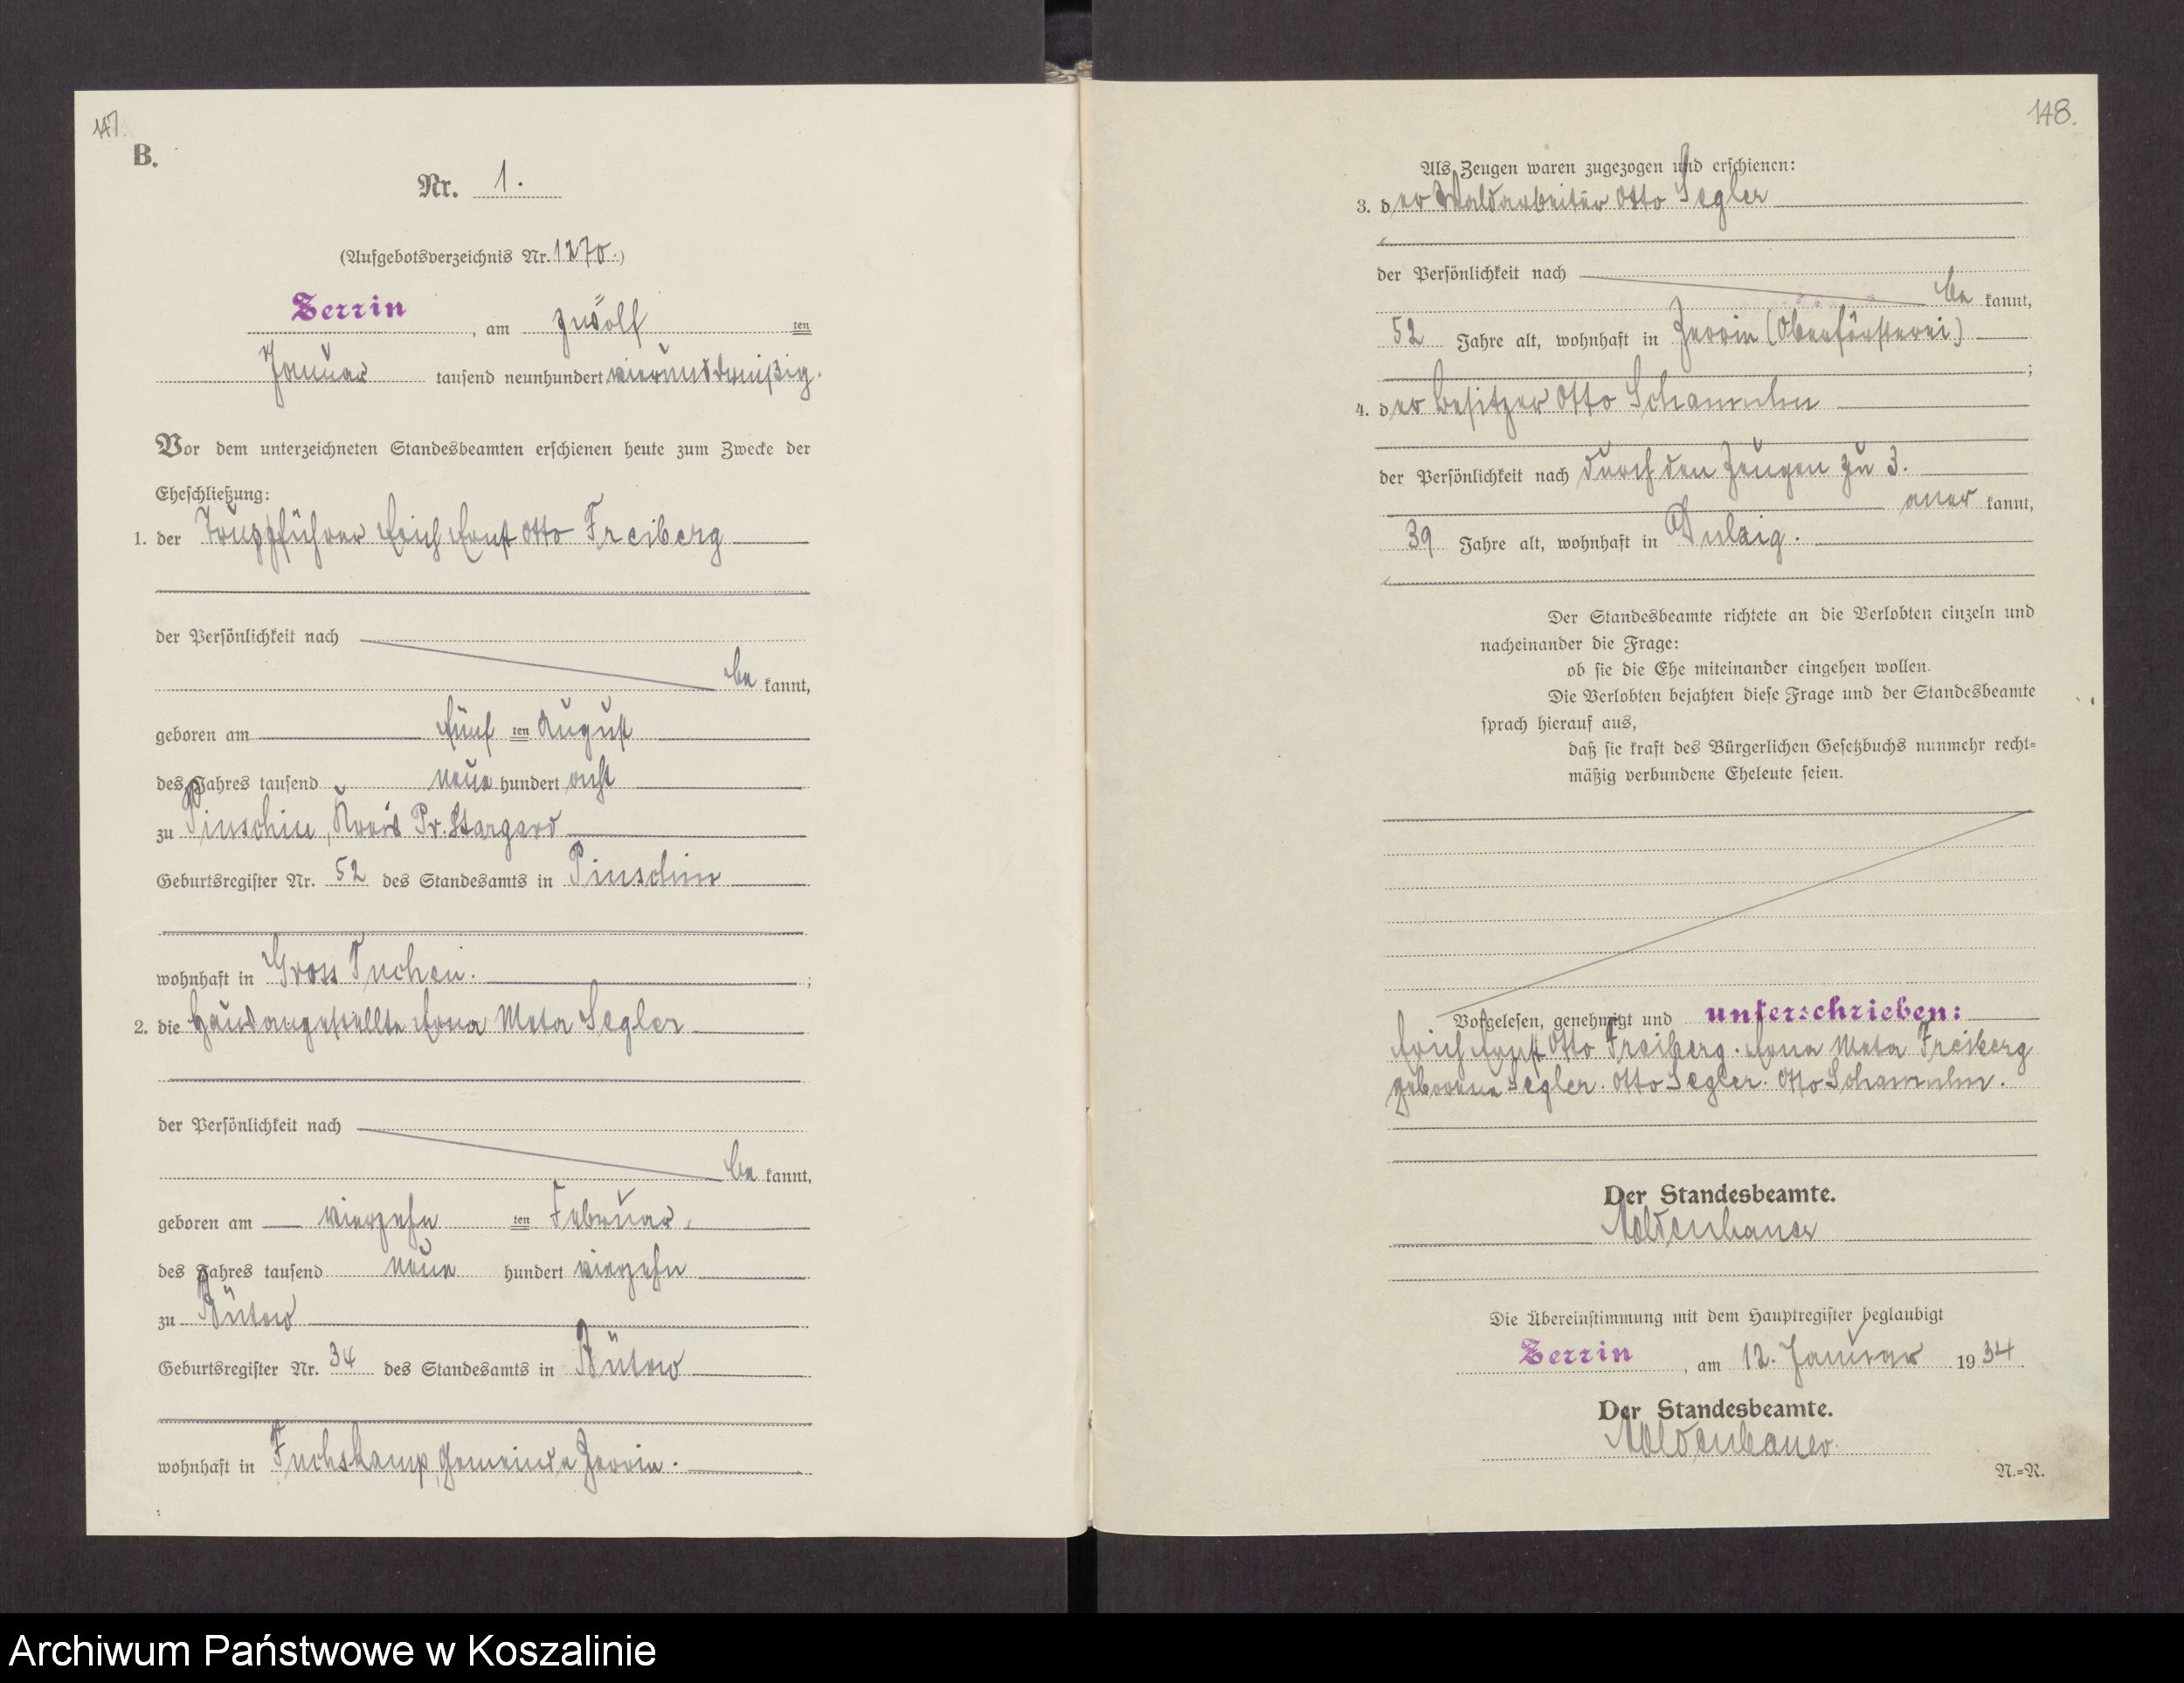 147.
B.
Nr. 1.
(Aufgebotsverzeichnis Nr. 1270.)
Zerrin, am zwölf ten
Januar tausend neunhundert vierunddreißig.
Vor dem unterzeichneten Standesbeamten erschienen heute zum Zwecke der
Eheschließung:
1. der Truppführer Erich Ernst Otto Freiberg
der Persönlichkeit nach
be kannt,
geboren am fünf ten August
des Jahres tausend neun hundert acht
zu Pinschin, Kreis Pr. Stargard
Geburtsregister Nr. 52 des Standesamts in Pinschin
wohnhaft in Gross Tuchen. ;
2. die Hausangestellte Erna Meta Segler
der Persönlichkeit nach
be kannt,
geboren am vierzehn ten Februar,
des Jahres tausend neun hundert vierzehn
zu Bütow
Geburtsregister Nr. 34 des Standesamts in Bütow
wohnhaft in Fuchskamp, Gemeinde Zerrin.
148.
Als Zeugen waren zugezogen und erschienen:
3. der Waldarbeiter Otto Segler
der Persönlichkeit nach
be kannt,
52 Jahre alt, wohnhaft in Zerrin (Oberförsterei)
;
4. der Besitzer Otto
der Persönlichkeit nach durch den Zeugen zu 3.
aner kannt,
39 Jahre alt, wohnhaft in
Der Standesbeamte richtete an die Verlobten einzeln und
nacheinander die Frage:
ob sie die Ehe miteinander eingehen wollen.
Die Verlobten bejahten diese Frage und der Standesbeamte
sprach hierauf aus,
daß sie kraft des Bürgerlichen Gesetzbuchs nunmehr recht=
mäßig verbundene Eheleute seien.
Vorgelesen, genehmigt und unterschrieben:
Erich Ernst Otto Freiberg. Erna Meta Freiberg
geborene Segler. Otto Segler. Otto
Der Standesbeamte.
Moldenhauer
Die Übereinstimmung mit dem Hauptregister beglaubigt
Zerrin, am 12. Januar 1934.
Der Standesbeamte.
Moldenhauer.
N.=R.
Archiwum Państwowe w Koszalinie